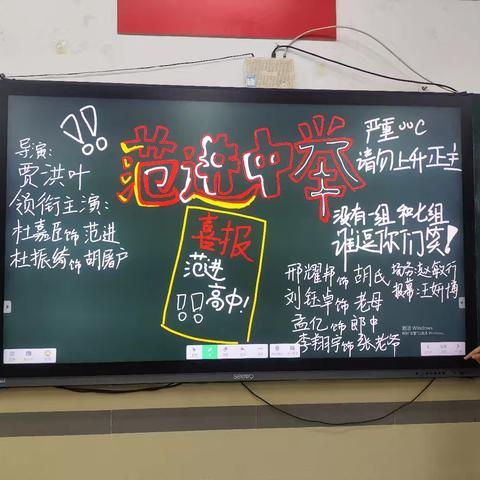 导演:
贾洪叶
领衔主演:
杜嘉臣饰范进
杜振绮饰胡屠户
!!
范进中举
喜报
范进
高中!
!!
严重OOC
请勿上升正主
没有一组和七组
谁逗你们笑!
邢耀邦饰胡氏
刘钰卓饰老母
孟亿饰郎中
李翔宇饰张老爷
场务:赵敏行
报幕:汪妍博
激活 Windows
seewo